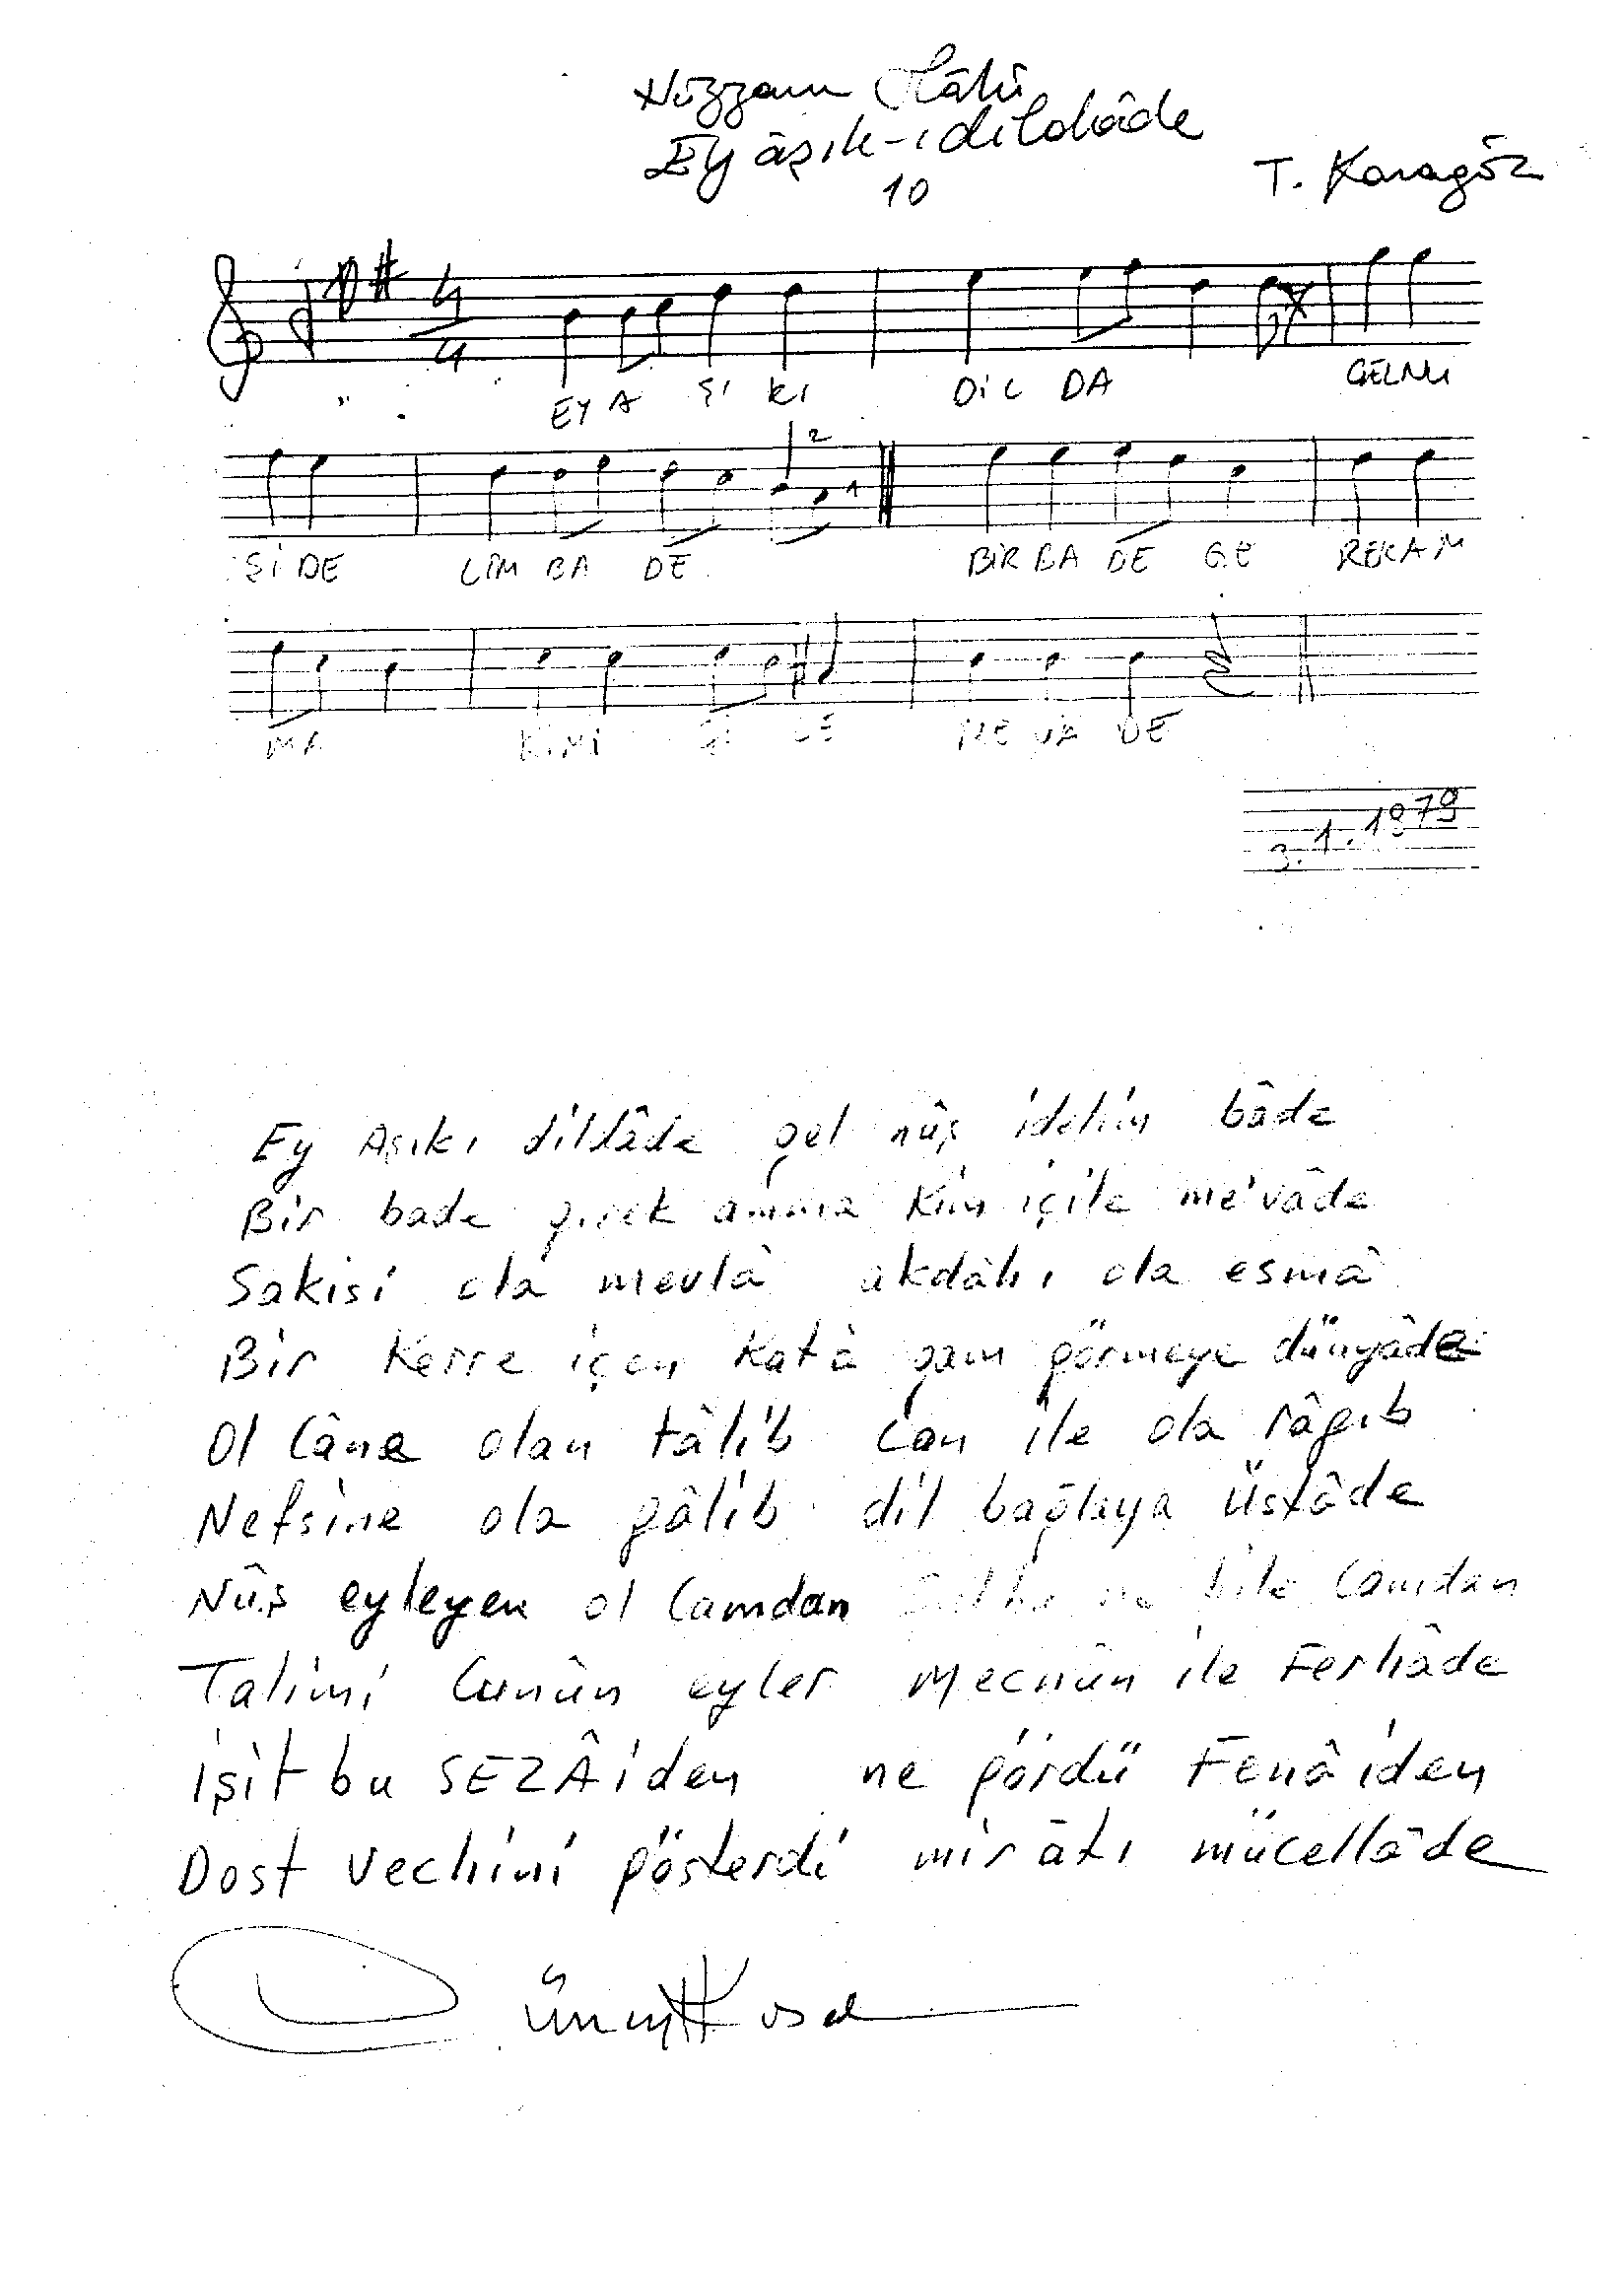 Hüzzam İlâhi
Ey âşık-ı dildâde
10
T. Karagöz
4
4
EY A Şİ KI DİL DA GELNU
2
1
Şİ DE LİM BA DE BİR BA DE GE REKAM
MA KİMİ Çİ LE ME VA DE
3.1.1979
Ey Aşıkı dildâde gel nûş idelim bâde
Bir bade gerek amma kim içile me'vâde
Sakisi ola mevlâ akdâhı ola esmâ
Bir kerre içen katâ gam görmeye dünyâde
Ol Câne olan tâlib Can ile ola râgıb
Nefsine ola gâlib dil bağlaya üstâde
Nûş eyleyen ol Camdan ne bile Camdan
Talimi Cunûn eyler Mecnûn ile Ferhâde
İşit bu SEZÂiden ne gördü Fenâiden
Dost vechini gösterdi mirâtı mücellâde